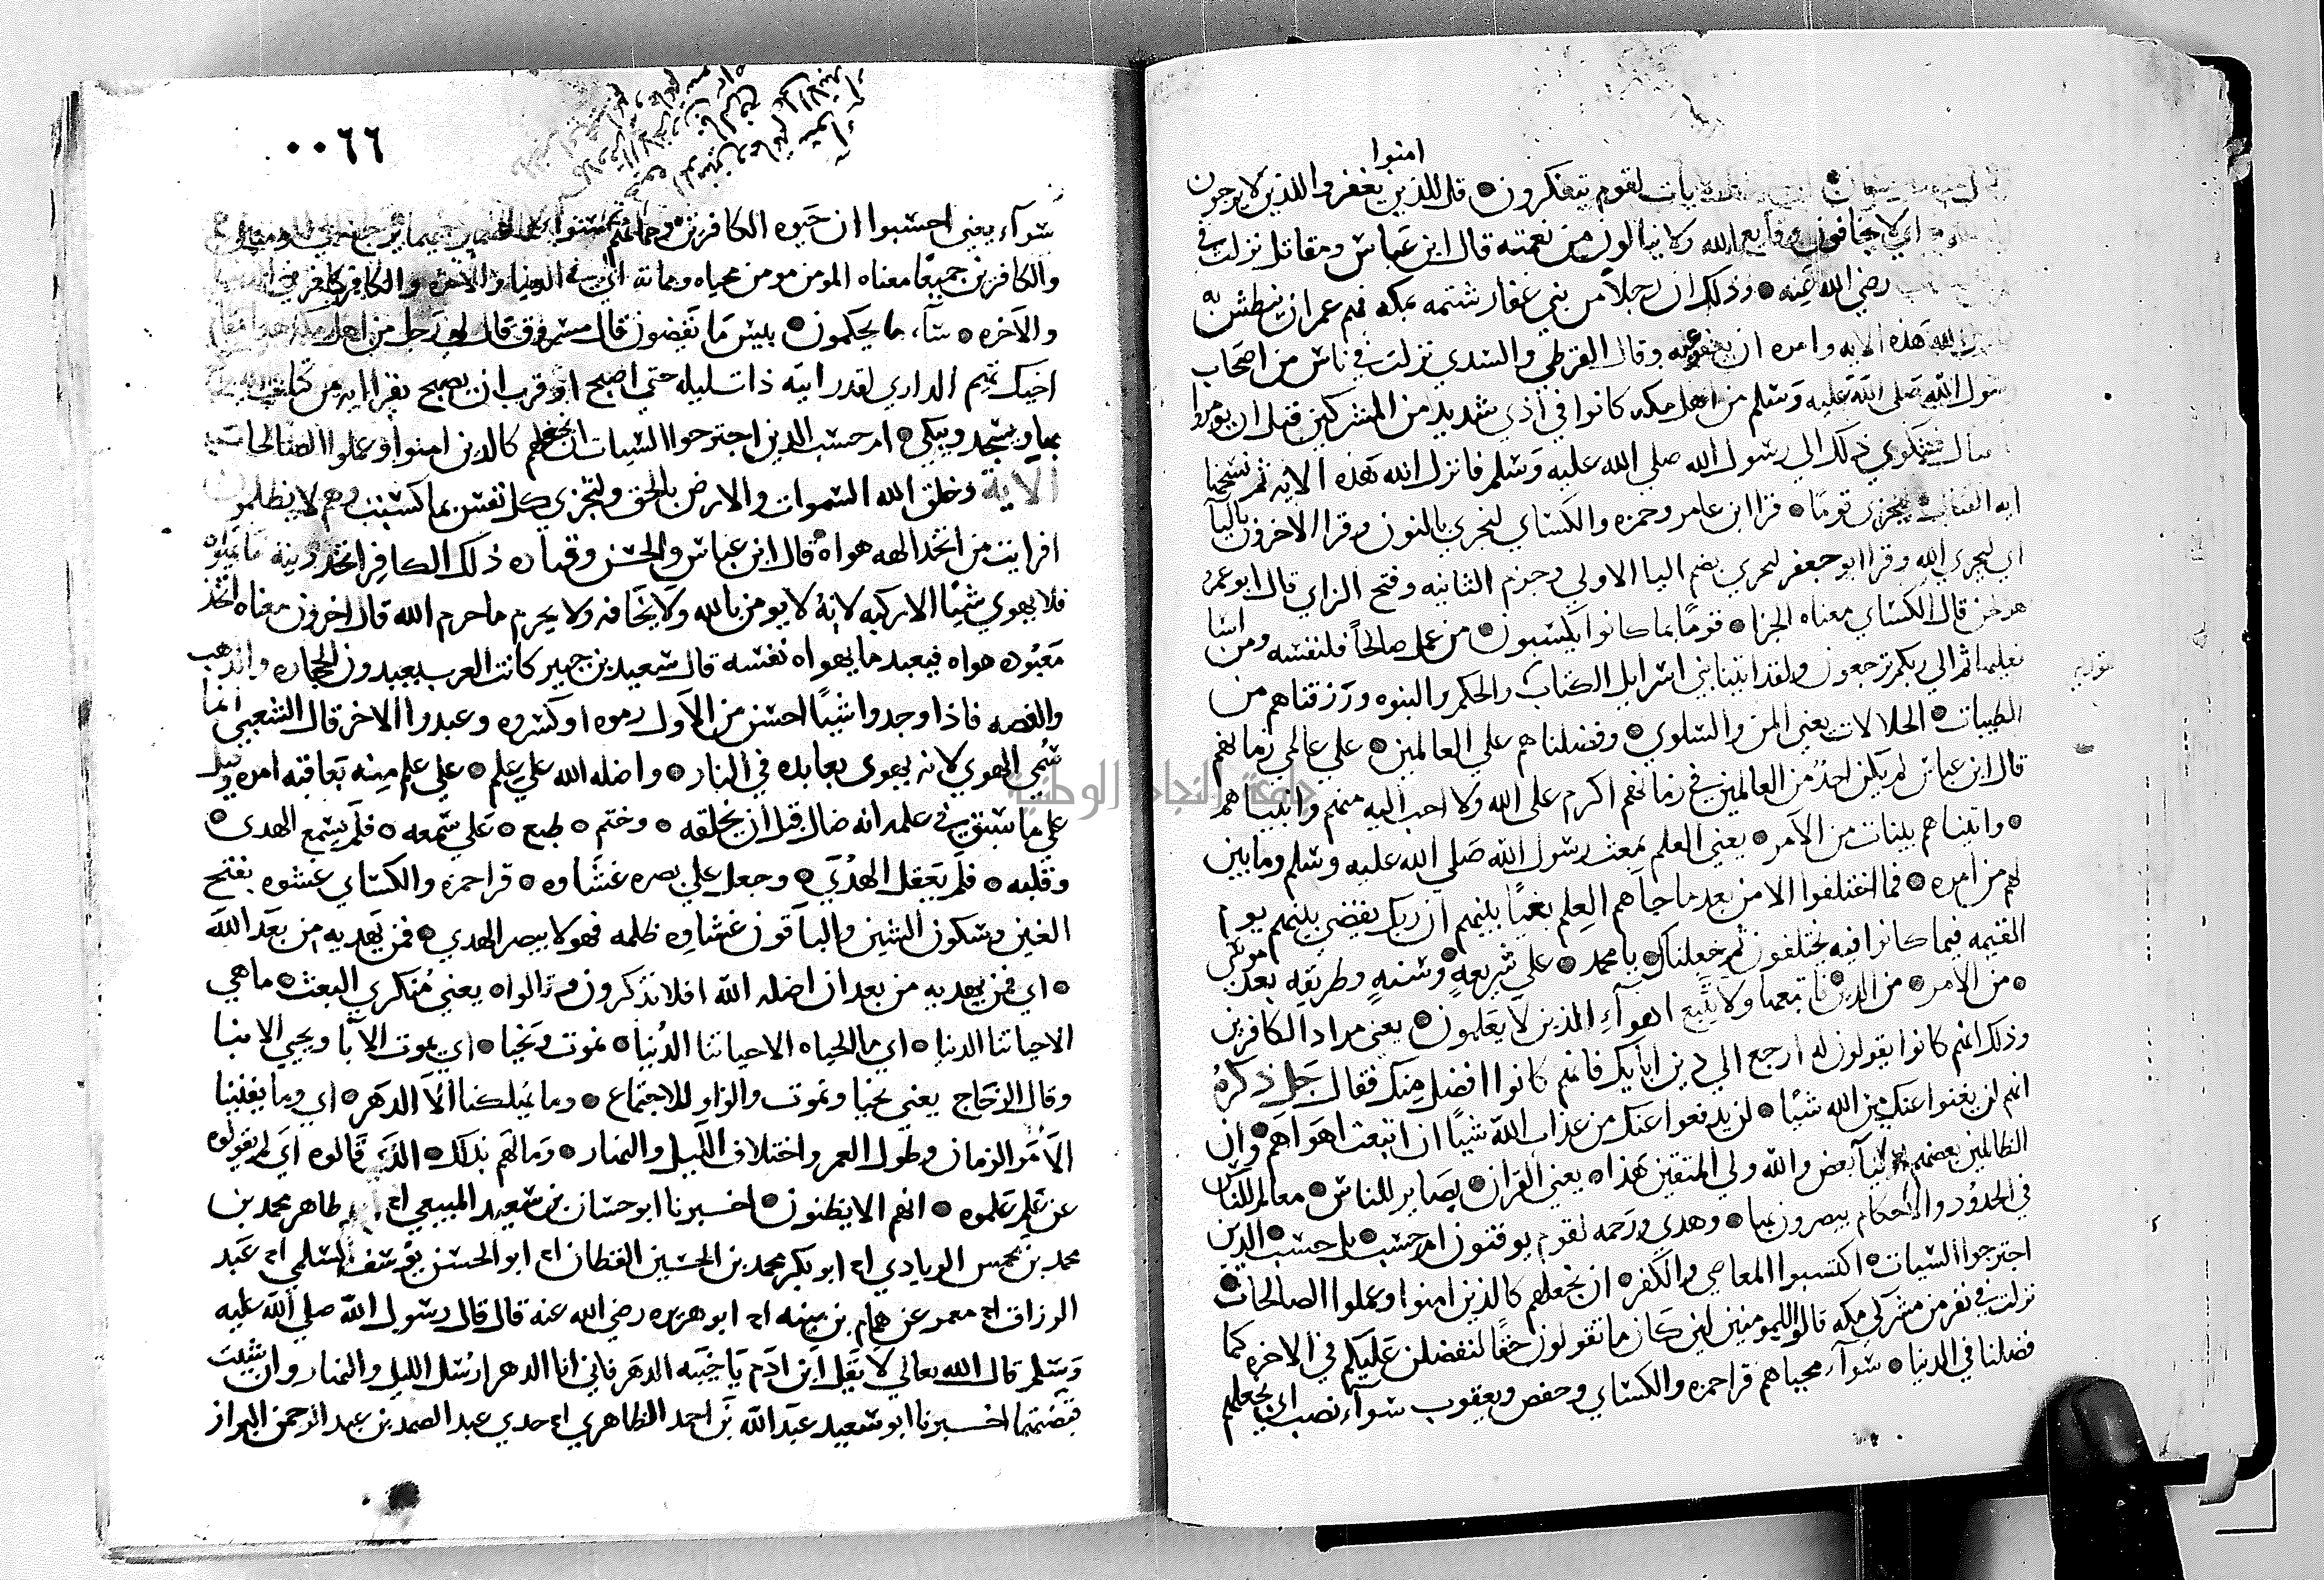 امنوا
لايات لقوم يتفكرون ۞ قل للذين يغفروا للذين لا يرجون
اي لا يخافون وقايع الله ولا ينالون من نعمته قال ابن عباس ومقاتل نزلت في
رضي الله عنه ۞ وذلك ان رجلاً من بني غفار شتمه بمكه فهم عمر ان يبطش به
الله هذه الايه وامره ان يعفو عنه وقال القرظي والسدي نزلت في ناس من اصحاب
رسول الله صلى الله عليه وسلم من اهل مكه كانوا في أذي شديد من المشركين قبل ان يومروا
فشكوا ذلك الي رسول الله صلي الله عليه وسلم فانزل الله هذه الايه ثم نسختها
ايه القتال ۞ ليجزي قومًا ۞ قرا ابن عامر وحمزه والكساي لنجزي بالنون وقرا الاخرون باليآ
اي ليجزي الله وقرا ابو جعفر ليجزي بضم اليا الاولي وجزم الثانيه وفتح الزاي قال ابو عمرو
هو لحن قال الكساي معناه الجزا ۞ قومًا بما كانوا يكسبون ۞ من عمل صالحًا فلنفسه ومن اسا
فعليها ثم الي ربكم ترجعون ولقد اتينا بني اسرايل الكتاب والحكم والنبوه ورزقناهم من
الطيبات ۞ الحلالات يعني المن والسلوي ۞ وفضلناهم علي العالمين ۞ علي عالمي زمانهم
قال ابن عباس لم يكن احدٌ من العالمين في زمانهم اكرم على الله ولا احب اليه منهم واتيناهم
۞ واتيناهم بينات من الآمر ۞ يعني العلم بمعث رسول الله صلي الله عليه وسلم وما بين
لهم من امره ۞ فما اختلفوا الا من بعد ما جاهم العلم بغيًا بينهم ان ربك يقضي بينهم يوم
القيمه فيما كانوا فيه يختلفون ثم جعلناك ۞ يا محمد ۞ علي شريعةٍ ۞ وسنةٍ وطريقه بعد موسى
۞ من الامر ۞ من الدين فاتبعها ولا تتبع اهوآء الذين لا يعلمون ۞ يعني مراد الكافرين
وذلك انهم كانوا يقولون له ارجع الي دين ابايك فانهم كانوا افضل منك فقال جل ذكره
انهم لن يغنوا عنك من الله شيًا ۞ لن يدفعوا عنك من عذاب الله شيًا ان اتبعت اهواهم ۞ وان
الظالمين بعضهم اوليآ بعض والله ولي المتقين هذا ۞ يعني القران ۞ بصاير للناس ۞ معالم للناس
في الحدود والاحكام يبصرون بها ۞ وهدي ورحمه لقوم يوقنون ام حسب ۞ بل حسب ۞ الذين
اجترحوا السيات ۞ اكتسبوا المعاصي والكفر ۞ ان نجعلهم كالذين امنوا وعملوا الصالحات ۞
نزلت في نفر من مشركي مكه قالوا للمومنين لين كان ما تقولون حقًا لنفضلن عليكم في الاخره كما
فضلنا في الدنيا ۞ سوآء محياهم قرا حمزه والكساي وحفص ويعقوب سوآء نصب اي نجعلهم
٠٠٦٦
سوآء يعني احسبوا ان حيوه الكافرين ومماتهم
والكافرين جميعًا معناه المومن مومن محياه ومماته اي في الدنيا والاخره والكافر كافر في
والآخره ۞ سآء ما يحكمون ۞ بيس ما تقضون قال مسروق قال لي رجل من اهل مكه هذا مقام
اخيك تميم الداري لقد رايته ذات ليله حتي اصبح او قرب ان يصبح يقرا ايه من كتاب
بها ويسجد ويبكي ۞ ام حسب الذين اجترحوا السيات ان نجعلهم كالذين امنوا وعملوا الصالحات
الآية وخلق الله السموات والارض بالحق ولتجزي كل نفس بما كسبت وهم لا يظلمون
افرايت من اتخذ الهه هواه ۞ قال ابن عباس والحسن وقتاده ذلك الكافر اتخذ دينه ما يهواه
فلا يهوي شيًا الا ركبه لانهُ لا يومن بالله ولا يخافه ولا يحرم ما حرم الله قال اخرون معناه اتخذ
معبوده هواه فيعبد ما يهواه نفسه قال سعيد بن جبير كانت العرب يعبدون الحجاره والذهب
والفضه فاذا وجدوا شيًا احسن من الآول رموه او كسروه وعبدوا الاخر قال الشعبي انما
سُمي الهوي لانه يهوى بعابده في النار ۞ واضله الله علي علم ۞ علي علم منه بعاقبه امره وقيل
علي ما سبق في علمه انه ضال قبل ان يخلقه ۞ وختم ۞ طبع ۞ علي سمعه ۞ فلم يسمع الهدى ۞
وقلبه ۞ فلم يعقل الهُدَي ۞ وجعل علي بصره غشاوه ۞ قرا حمزه والكساي غشوه بفتح
الغين وسكون الشين والباقون غشاوه ظلمه فهو لا يبصر الهدي ۞ فمن يهديه من بعد الله
۞ اي فمن يهديه من بعد ان اضله الله افلا تذكرون وقالوا ۞ يعني مُنكري البعث ۞ ما هي
الا حياتنا الدنيا ۞ اي ما الحياه الا حياتنا الدُنيا ۞ نموت ونحيا ۞ اي يموت الابآ ويحيي الابنا
وقال الزجاج يعني نحيا ونموت والواو للاجتماع ۞ وما يهلكنا الآ الدهر ۞ اي وما يفنينا
الا مر الزمان وطول العمر واختلاف الليل والنهار ۞ وما لهم بذلك ۞ الذي قالوه اي لم يقولوه
عن علم علموه ۞ انهم الا يظنون ۞ اخبرنا ابو حسان بن سعيد المنيعي اح ابو طاهر محمد بن
محمد بن محمس الزيادي اح ابو بكر محمد بن الحسين القطان اح ابو الحسن يوسف السلمي اح عبد
الرزاق اح معمر عن همام بن منبه اح ابو هريره رضي الله عنه قال قال رسول الله صلي الله عليه
وسلم قال الله تعالي لا يقل ابن ادم يا خيبه الدهر فاني انا الدهر ارسل الليل والنهار وان شيت
قبضتهما اخبرنا ابو سعيد عبد الله بن احمد الظاهري اح جدي عبد الصمد بن عبد الرحمن البزاز
جامعة النجاح الوطنية